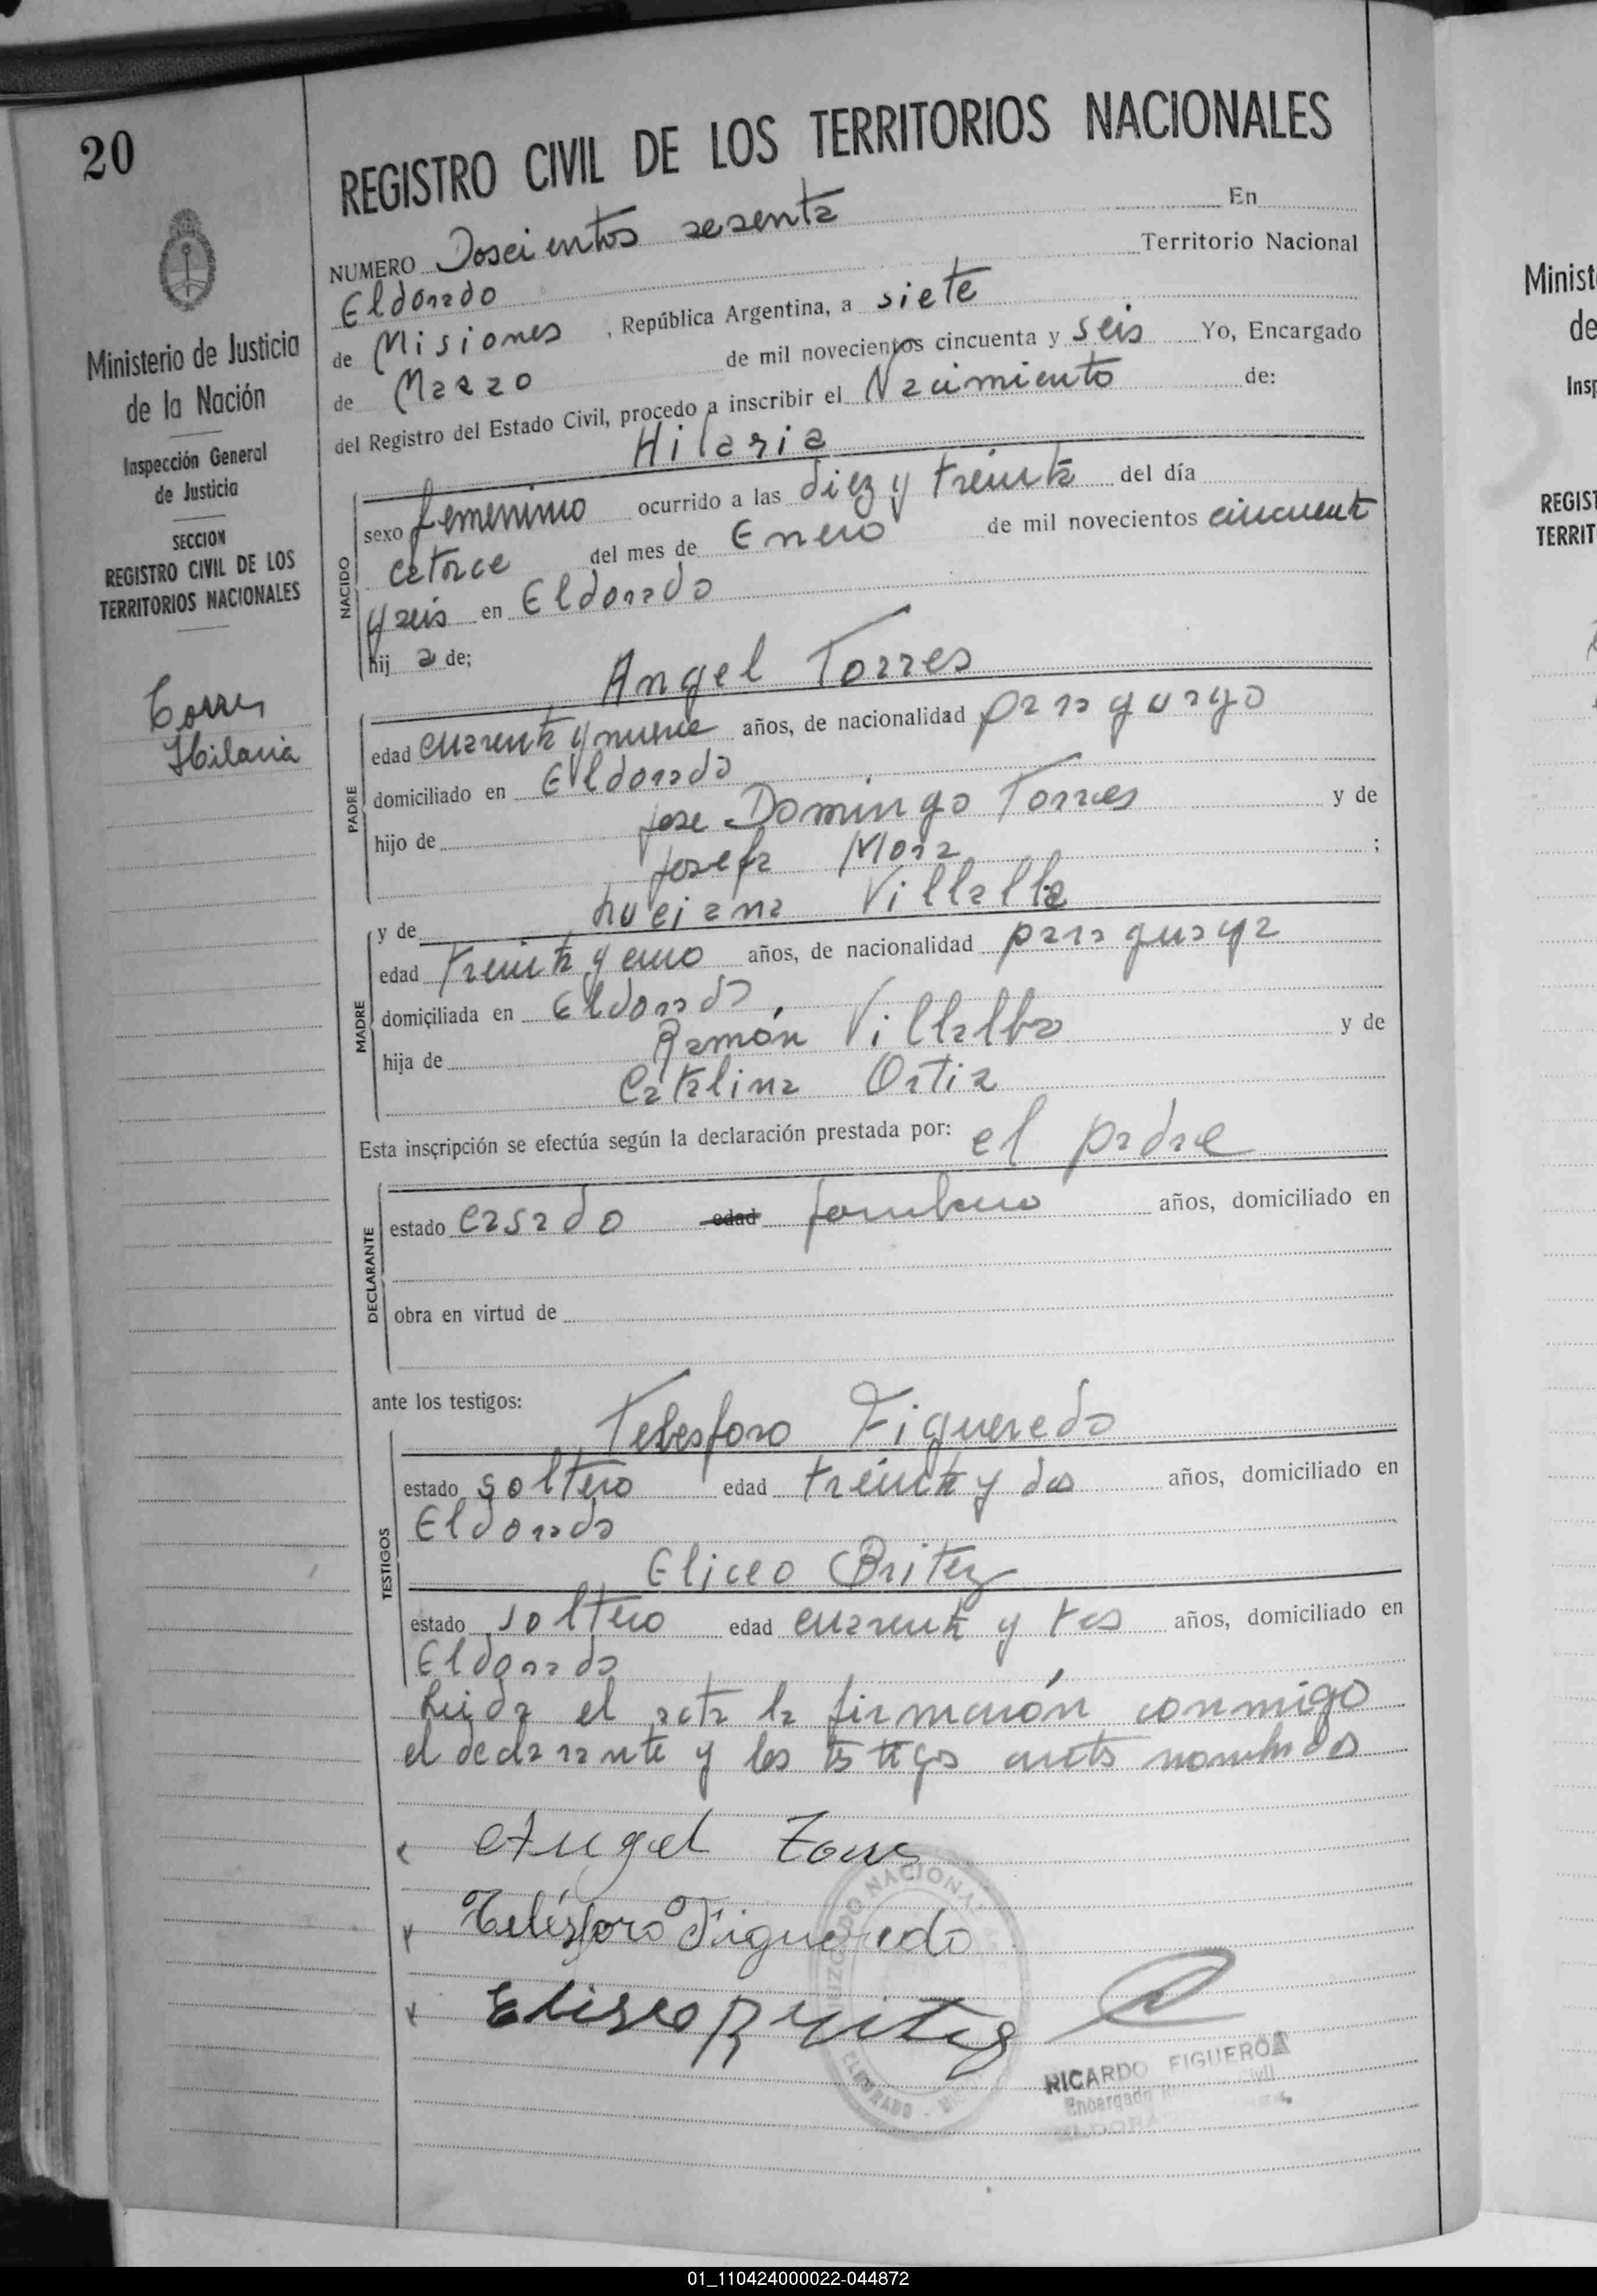 20
Ministerio de Justicia
de la Nación
Inspección General
de Justicia
SECCION
REGISTRO CIVIL DE LOS
TERRITORIOS NACIONALES
Torres
Hilaria
REGISTRO CIVIL DE LOS TERRITORIOS NACIONALES
NUMERO Doscientos sesenta En
Eldorado Territorio Nacional
de Misiones, República Argentina, a siete
de Marzo de mil novecientos cincuenta y seis Yo, Encargado
del Registro del Estado Civil, procedo a inscribir el Nacimiento de:
Hilaria
NACIDO
sexo femenino ocurrido a las diez y treinta del día
catorce del mes de Enero de mil novecientos cincuenta
y seis en Eldorado
hij a de;
Angel Torres
PADRE
edad cuarenta y nueve años, de nacionalidad paraguayo
domiciliado en Eldorado
hijo de Jose Domingo Torres y de
Josefa Mora ;
y de Luciana Villalba
MADRE
edad treinta y años, de nacionalidad paraguaya
domiciliada en Eldorado,
hija de Ramón Villalba y de
Catalina Ortiz
Esta inscripción se efectúa según la declaración prestada por: el padre
DECLARANTE
estado casado edad años, domiciliado en
obra en virtud de
ante los testigos:
Telesforo Figueredo
TESTIGOS
estado soltero edad treinta y dos años, domiciliado en
Eldorado
Eliceo Britez
estado soltero edad cuarenta y tres años, domiciliado en
Eldorado
Leida el acta la firmarón conmigo
el declarante y los testigos antes nombrados
Angel Torres
Telésforo Figueredo
Eliseo Britez
JUZGADO NACIONAL
ELDORADO
RICARDO FIGUEROA
Encargado Civil
ELDORADO
Minist
de
Insp
REGIST
TERRIT
01_110424000022-044872